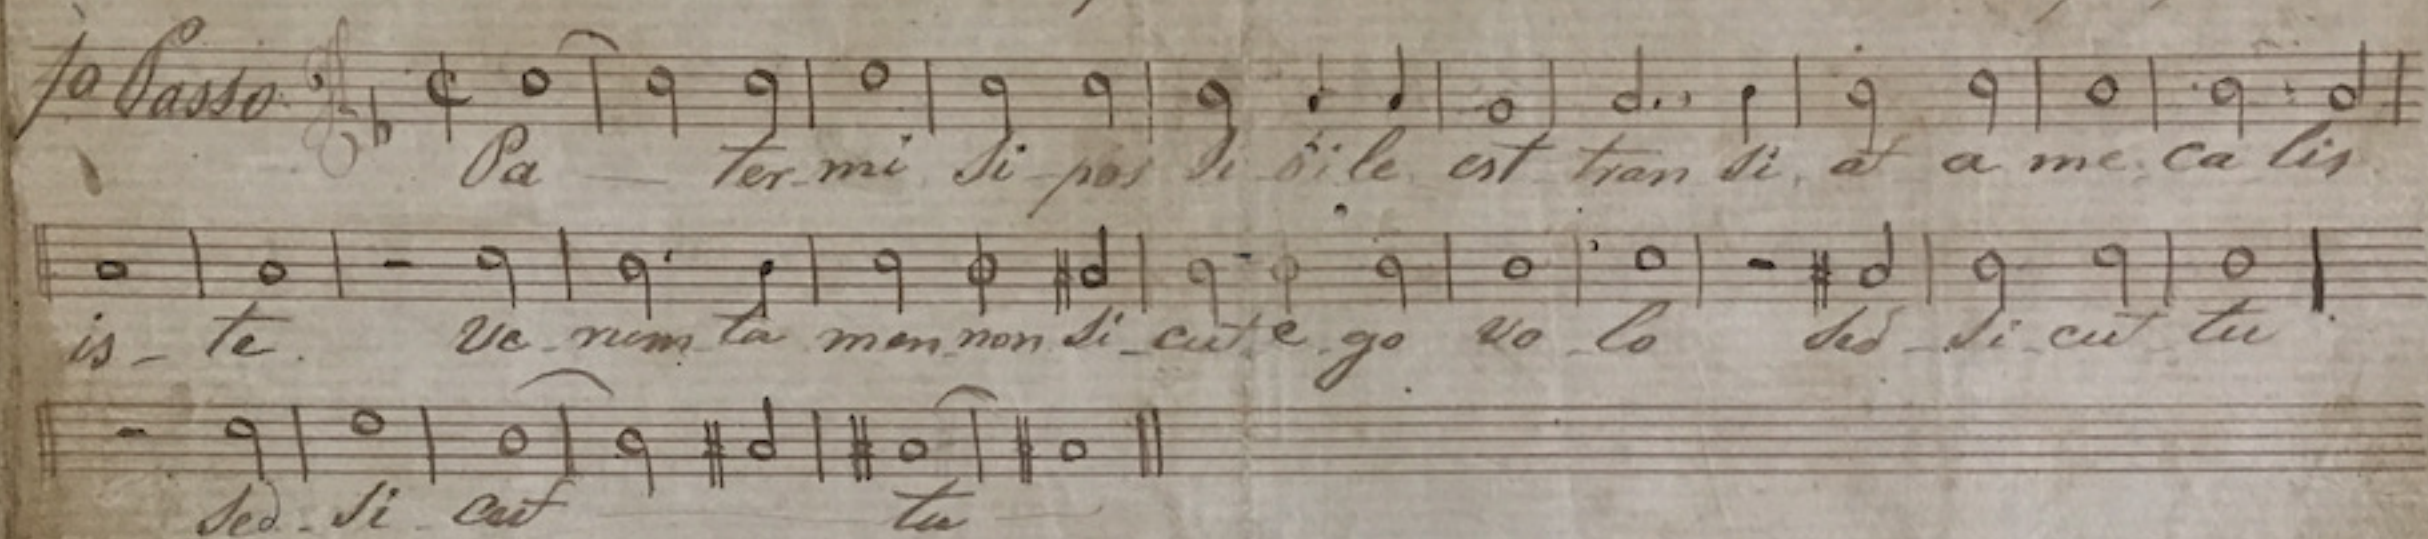 1o Passo
Pa - ter mi si pos si bile est tran si at a me ca lis
is - te. Ve rum ta men non si - cut e go vo lo sed - si - cut tu
sed - si - cut tu